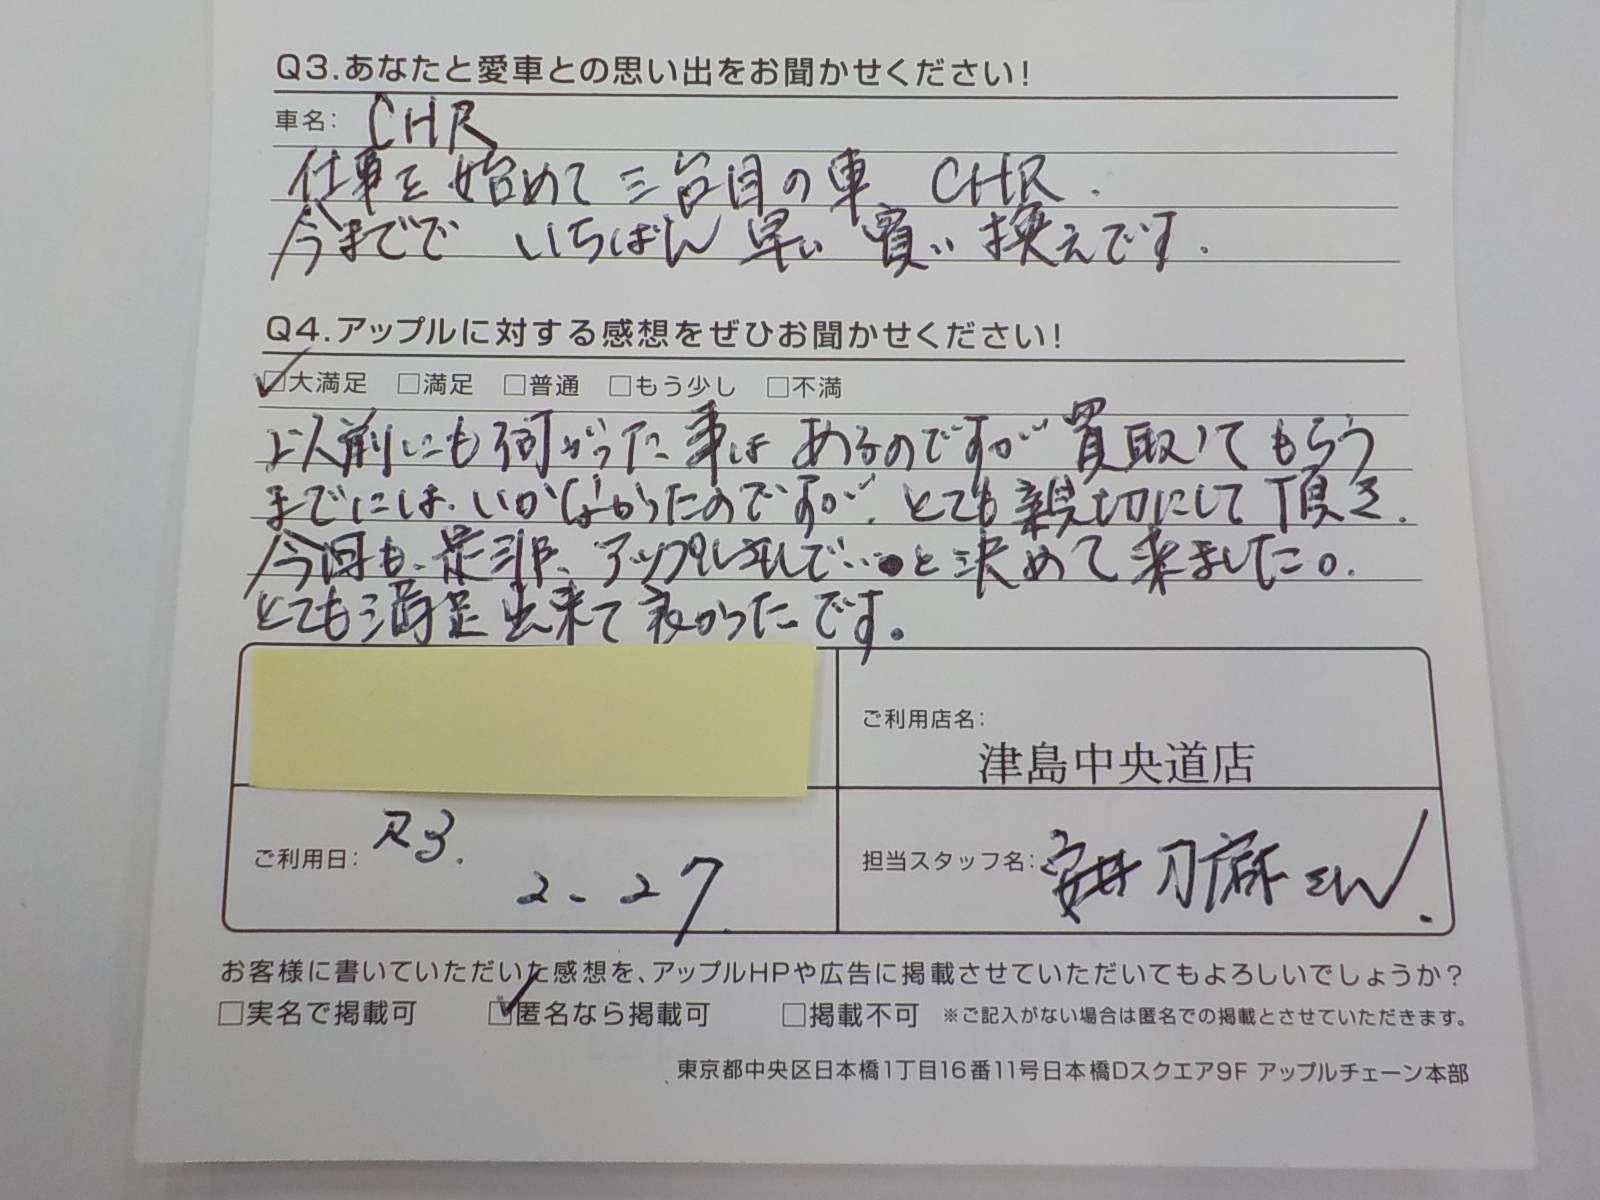 Q3.あなたと愛車との思い出をお聞かせください!
車名: CHR
仕事を始めて三台目の車 CHR.
今までで いちばん 早い 買い換えです.
Q4.アップルに対する感想をぜひお聞かせください!
☑大満足 □満足 □普通 □もう少し □不満
以前にも伺がった事はあるのですが買取ってもらう
までには、いかなかったのですが、とても親切にして頂き.
今回も、是非、アップルさんで…と決めて来ました。
とても満足出来て良かったです。
ご利用店名:
津島中央道店
ご利用日: R3. 2-27.
担当スタッフ名: 安井 さん.
お客様に書いていただいた感想を、アップルHPや広告に掲載させていただいてもよろしいでしょうか?
□実名で掲載可 ☑匿名なら掲載可 □掲載不可 ※ご記入がない場合は匿名での掲載とさせていただきます。
東京都中央区日本橋1丁目16番11号日本橋Dスクエア9F アップルチェーン本部